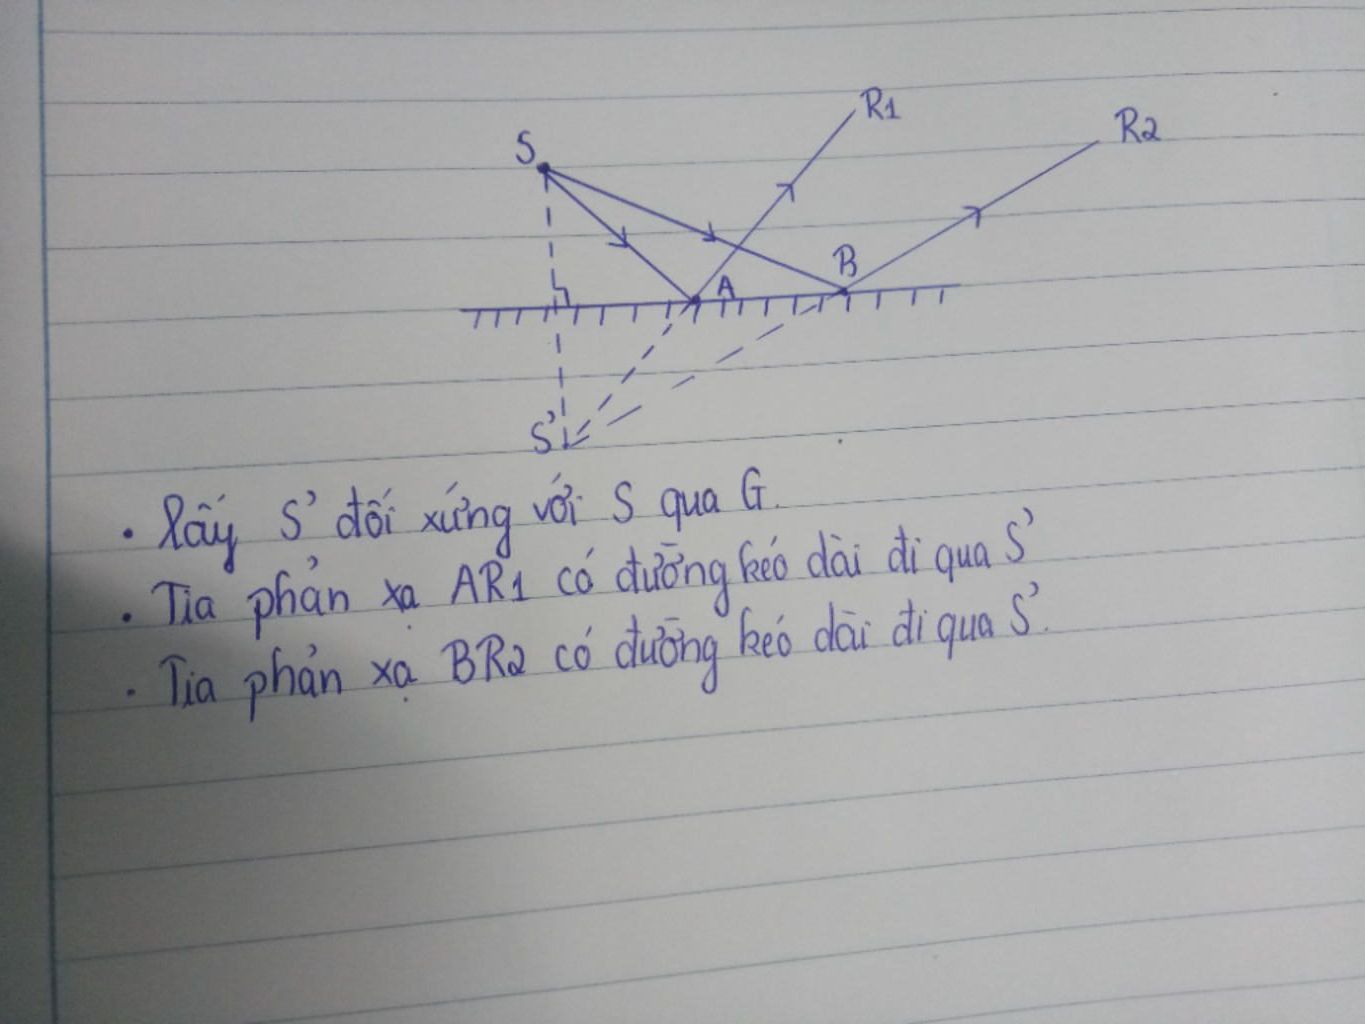 S
R1
R2
B
A
S'
. Lấy S' đối xứng với S qua G.
. Tia phản xạ AR1 có đường kéo dài đi qua S'
. Tia phản xạ BR2 có đường kéo dài đi qua S'.